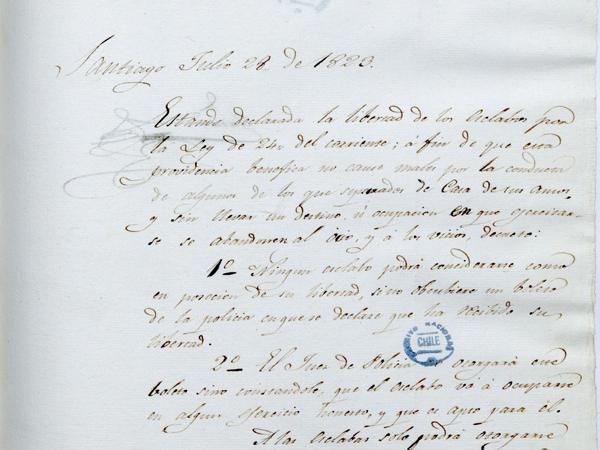 Santiago Julio 28 de 1823.
Estando declarada la libertad de los esclabos por
la Ley de 24 del corriente; á fin de que esta
providencia benefica no cause males por la conducta
de algunos de los que separados de Casa de sus amos,
y sin llevar un destino, ú ocupacion en que exercitar-
se se abandonen al ocio, y á los vicios, decreto:
1º Ningun esclabo podrá considerarse como
en posecion de su libertad, sino obtubiere un boleto
de la policia en que se declare que ha recibido su
libertad.
2º El Juez de Policia no otorgará este
boleto sino constandole, que el esclabo vá á ocuparse
en algun exercicio honesto, y que es apto para él.
A las esclabas solo podrá otorgarse
ARCHIVO NACIONAL
CHILE